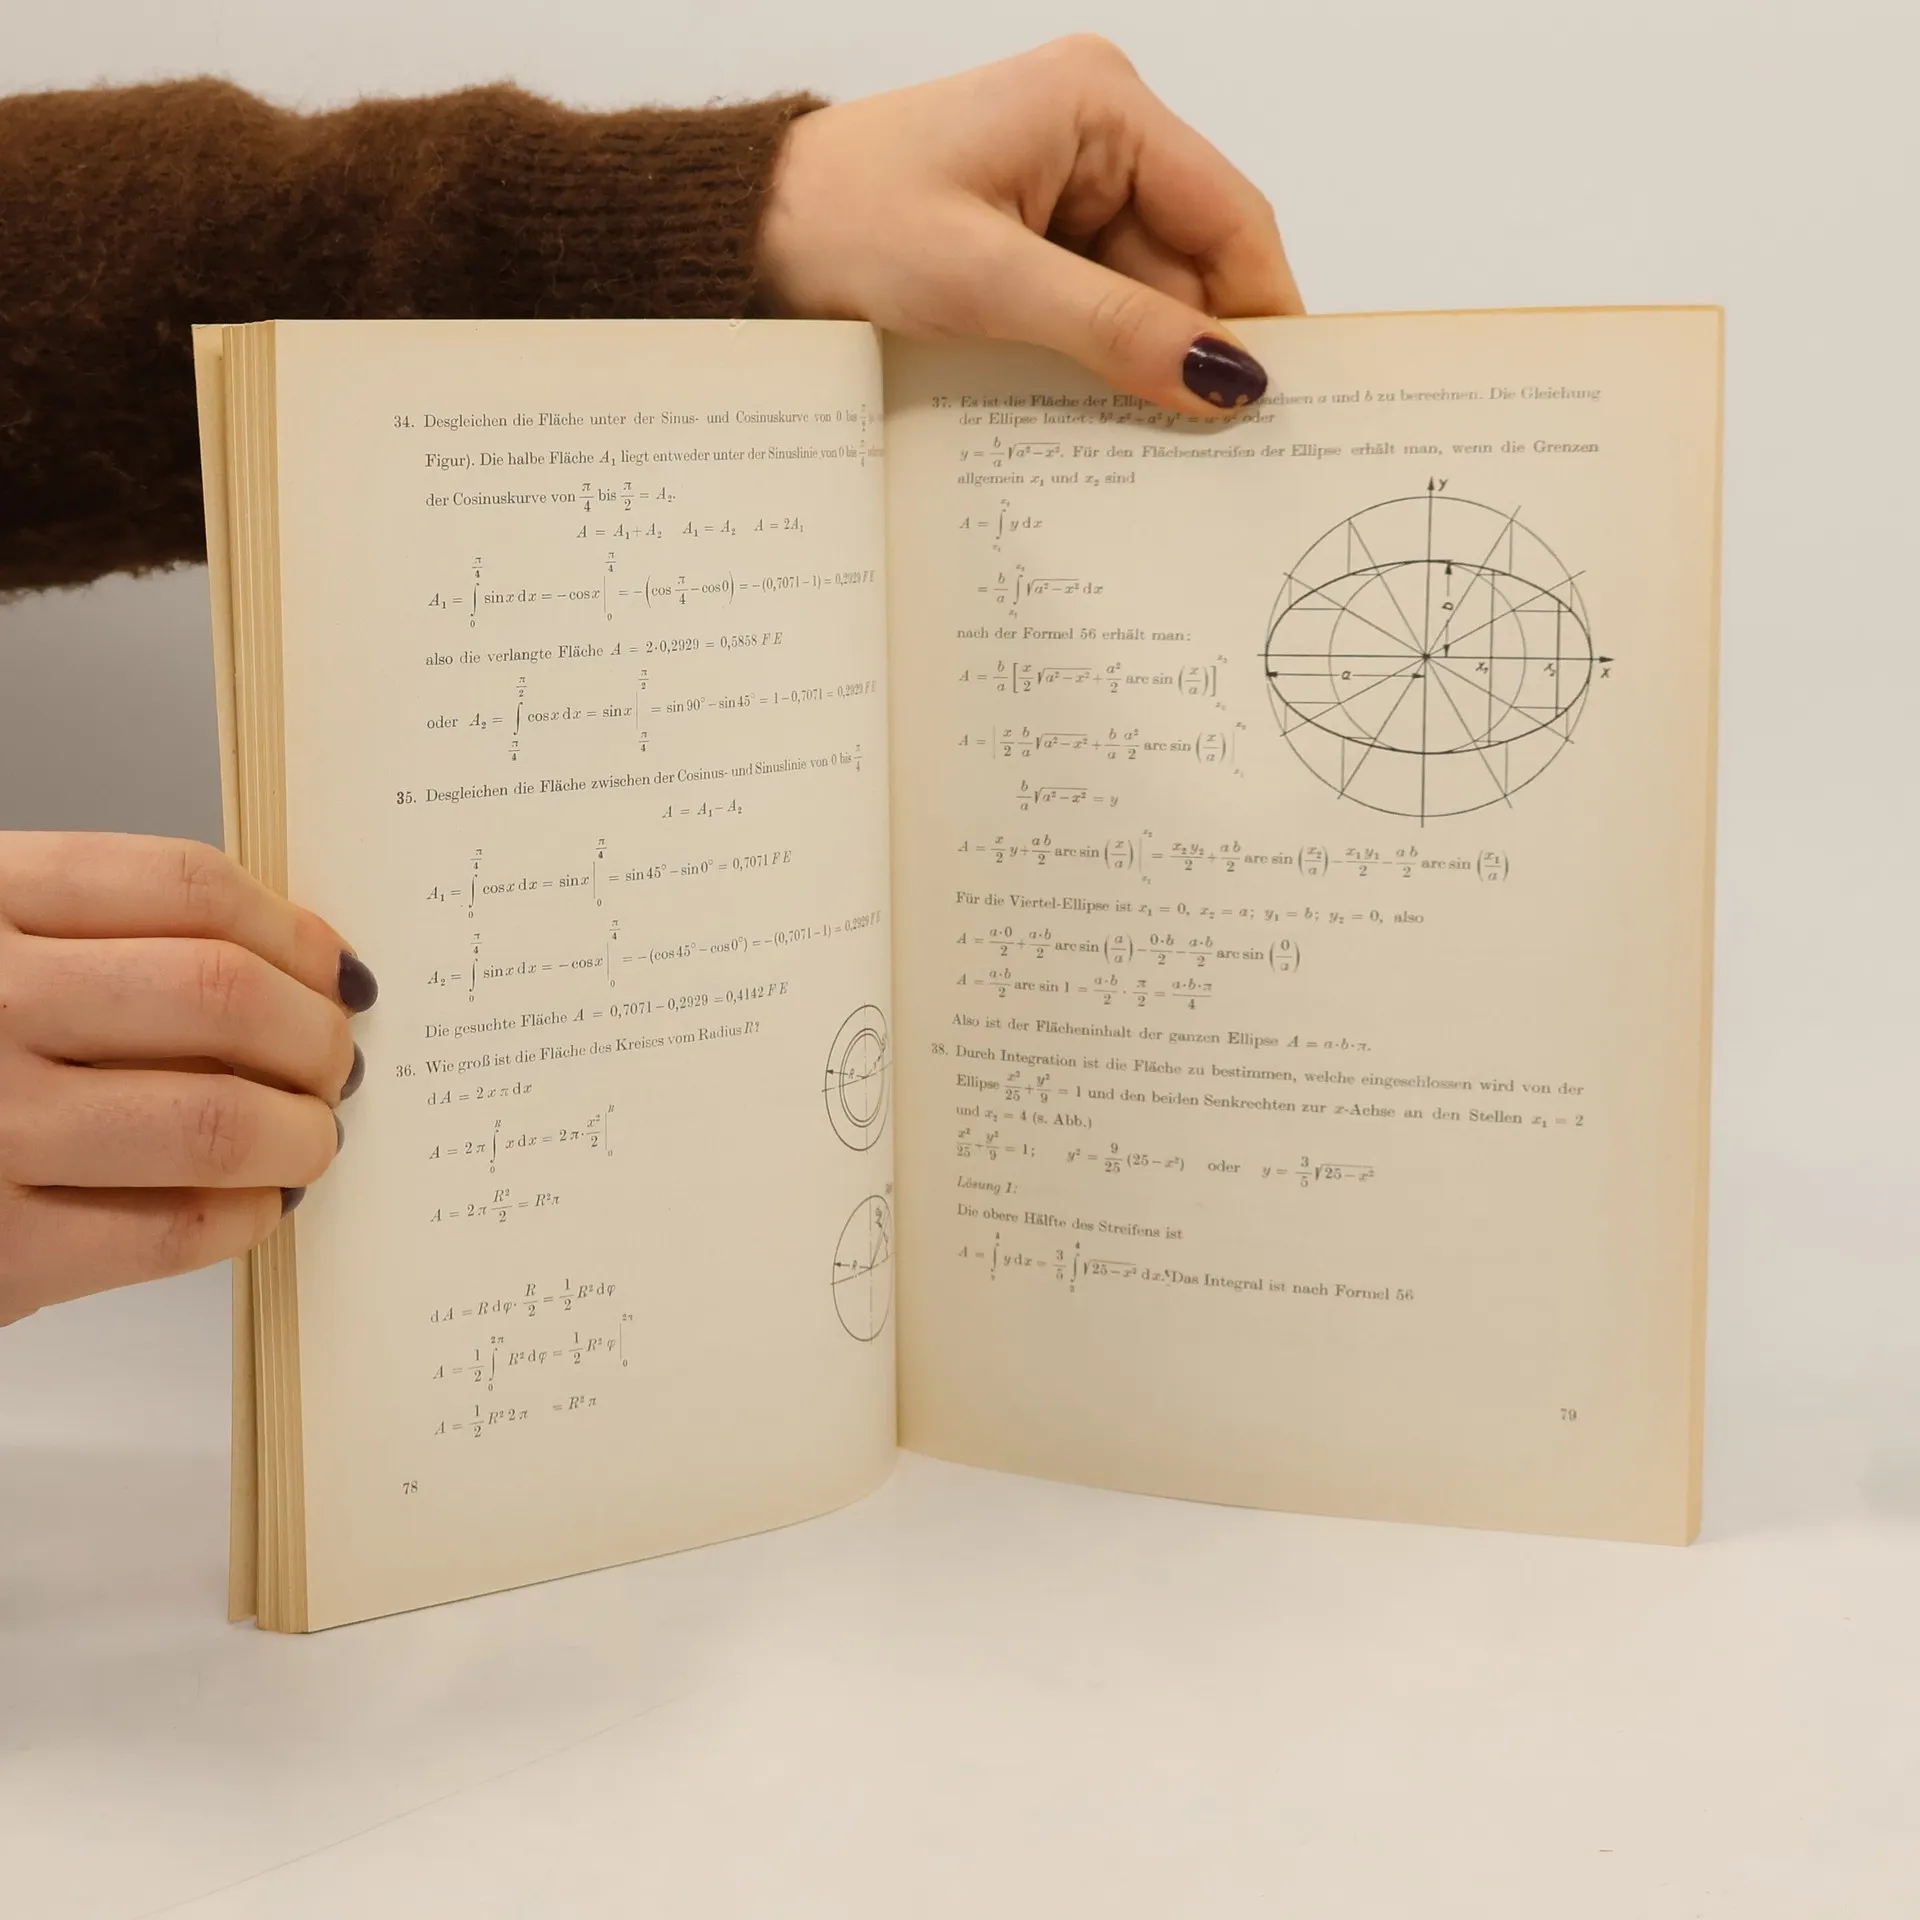 34. Desgleichen die Fläche unter der Sinus- und Cosinuskurve von 0 bis
Figur). Die halbe Fläche A₁ liegt entweder unter der Sinuslinie von 0 bis π/4
der Cosinuskurve von π/4 bis π/2 = A₂.
A = A₁ + A₂ A₁ = A₂ A = 2A₁
A₁ = ∫₀^(π/4) sin x dx = −cos x |₀^(π/4) = −(cos π/4 − cos 0) = −(0,7071−1) = 0,2929 FE
also die verlangte Fläche A = 2·0,2929 = 0,5858 FE
oder A₂ = ∫_(π/4)^(π/2) cos x dx = sin x |_(π/4)^(π/2) = sin 90° − sin 45° = 1−0,7071 = 0,2929 FE
35. Desgleichen die Fläche zwischen der Cosinus- und Sinuslinie von 0 bis π/4
A = A₁ − A₂
A₁ = ∫₀^(π/4) cos x dx = sin x |₀^(π/4) = sin 45° − sin 0° = 0,7071 FE
A₂ = ∫₀^(π/4) sin x dx = −cos x |₀^(π/4) = −(cos 45° − cos 0°) = −(0,7071−1) = 0,2929 FE
Die gesuchte Fläche A = 0,7071−0,2929 = 0,4142 FE
36. Wie groß ist die Fläche des Kreises vom Radius R?
dA = 2xπ dx
A = 2π ∫₀^R x dx = 2π · x²/2 |₀^R
A = 2π R²/2 = R²π
R
R
dA = R dφ · R/2 = 1/2 R² dφ
A = 1/2 ∫₀^(2π) R² dφ = 1/2 R² φ |₀^(2π)
A = 1/2 R² 2π = R² π
78
37. Es ist die Fläche der a und b zu berechnen. Die Gleichung
der Ellipse lautet: oder
y = b/a √(a²−x²). Für den Flächenstreifen der Ellipse erhält man, wenn die Grenzen
allgemein x₁ und x₂ sind
A = ∫_(x₁)^(x₂) y dx
= b/a ∫_(x₁)^(x₂) √(a²−x²) dx
nach der Formel 56 erhält man:
A = b/a [x/2 √(a²−x²) + a²/2 arc sin (x/a)]_(x₁)^(x₂)
A = | x/2 b/a √(a²−x²) + b/a a²/2 arc sin (x/a) |_(x₁)^(x₂)
b/a √(a²−x²) = y
y
b
a
x₁
x₂
x
A = x/2 y + ab/2 arc sin (x/a) |_(x₁)^(x₂) = x₂y₂/2 + ab/2 arc sin (x₂/a) − x₁y₁/2 − ab/2 arc sin (x₁/a)
Für die Viertel-Ellipse ist x₁ = 0, x₂ = a; y₁ = b; y₂ = 0, also
A = a·0/2 + a·b/2 arc sin (a/a) − 0·b/2 − a·b/2 arc sin (0/a)
A = a·b/2 arc sin 1 = a·b/2 · π/2 = a·b·π/4
Also ist der Flächeninhalt der ganzen Ellipse A = a·b·π.
38. Durch Integration ist die Fläche zu bestimmen, welche eingeschlossen wird von der
Ellipse x²/25 + y²/9 = 1 und den beiden Senkrechten zur x-Achse an den Stellen x₁ = 2
und x₂ = 4 (s. Abb.)
x²/25 + y²/9 = 1; y² = 9/25 (25−x²) oder y = 3/5 √(25−x²)
Lösung 1:
Die obere Hälfte des Streifens ist
A = ∫₂⁴ y dx = 3/5 ∫₂⁴ √(25−x²) dx. Das Integral ist nach Formel 56
79